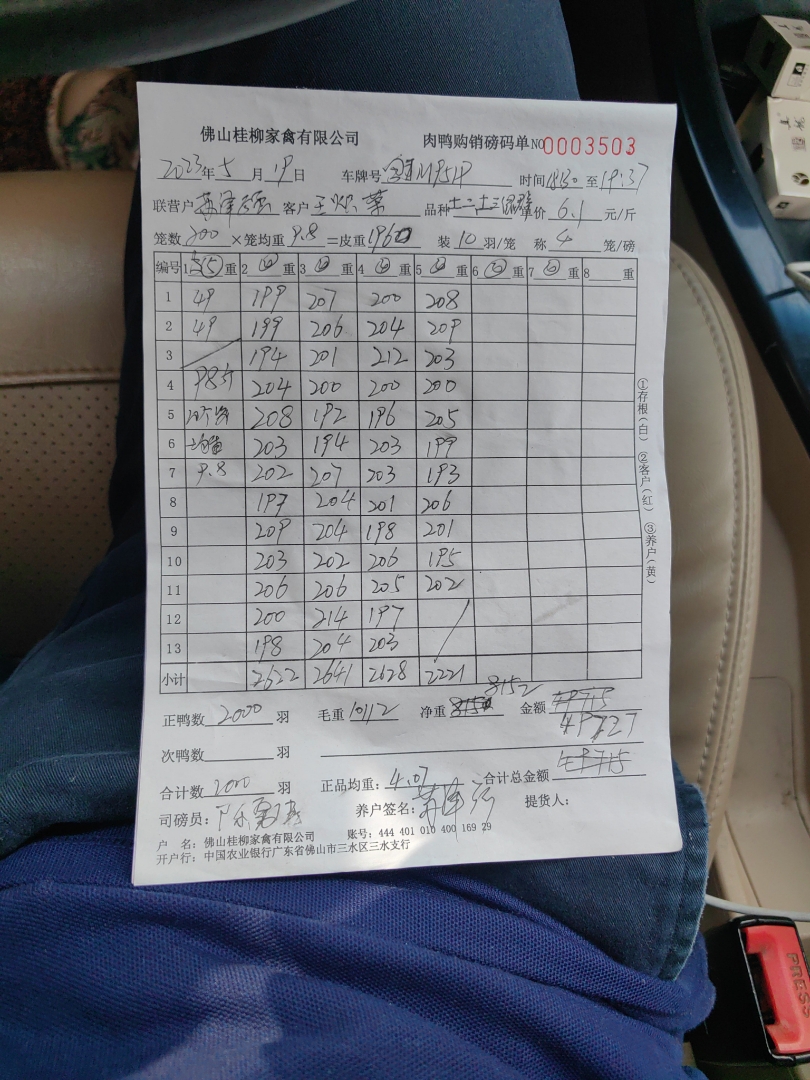 佛山桂柳家禽有限公司 肉鸭购销磅码单 NO0003503
2023年5月19日 车牌号 时间18:30至19:37
联营户 客户 王 荣 品种 单价6.1元/斤
笼数200×笼均重9.8=皮重1960 装10羽/笼 称4笼/磅
编号 1 重 2 重 3 重 4 重 5 重 6 重 7 重 8 重
1 49 199 207 200 208
2 49 199 206 204 209
3 194 201 212 203
4 98斤 204 200 200 200
5 208 192 196 205
6 203 194 203 199
7 9.8 202 207 203 193
8 197 204 201 206
9 209 204 198 201
10 203 202 206 195
11 206 206 205 202
12 200 214 197
13 198 204 203
小计 2622 2641 2628 2221
正鸭数2000羽 毛重10112 净重 8152 金额 49715 49727
次鸭数 羽
合计数2000羽 正品均重：4.07 合计总金额 49715
司磅员： 养户签名： 提货人：
户 名：佛山桂柳家禽有限公司 账号：444 401 010 400 169 29
开户行：中国农业银行广东省佛山市三水区三水支行
①存根（白） ②客户（红） ③养户（黄）
PRESS